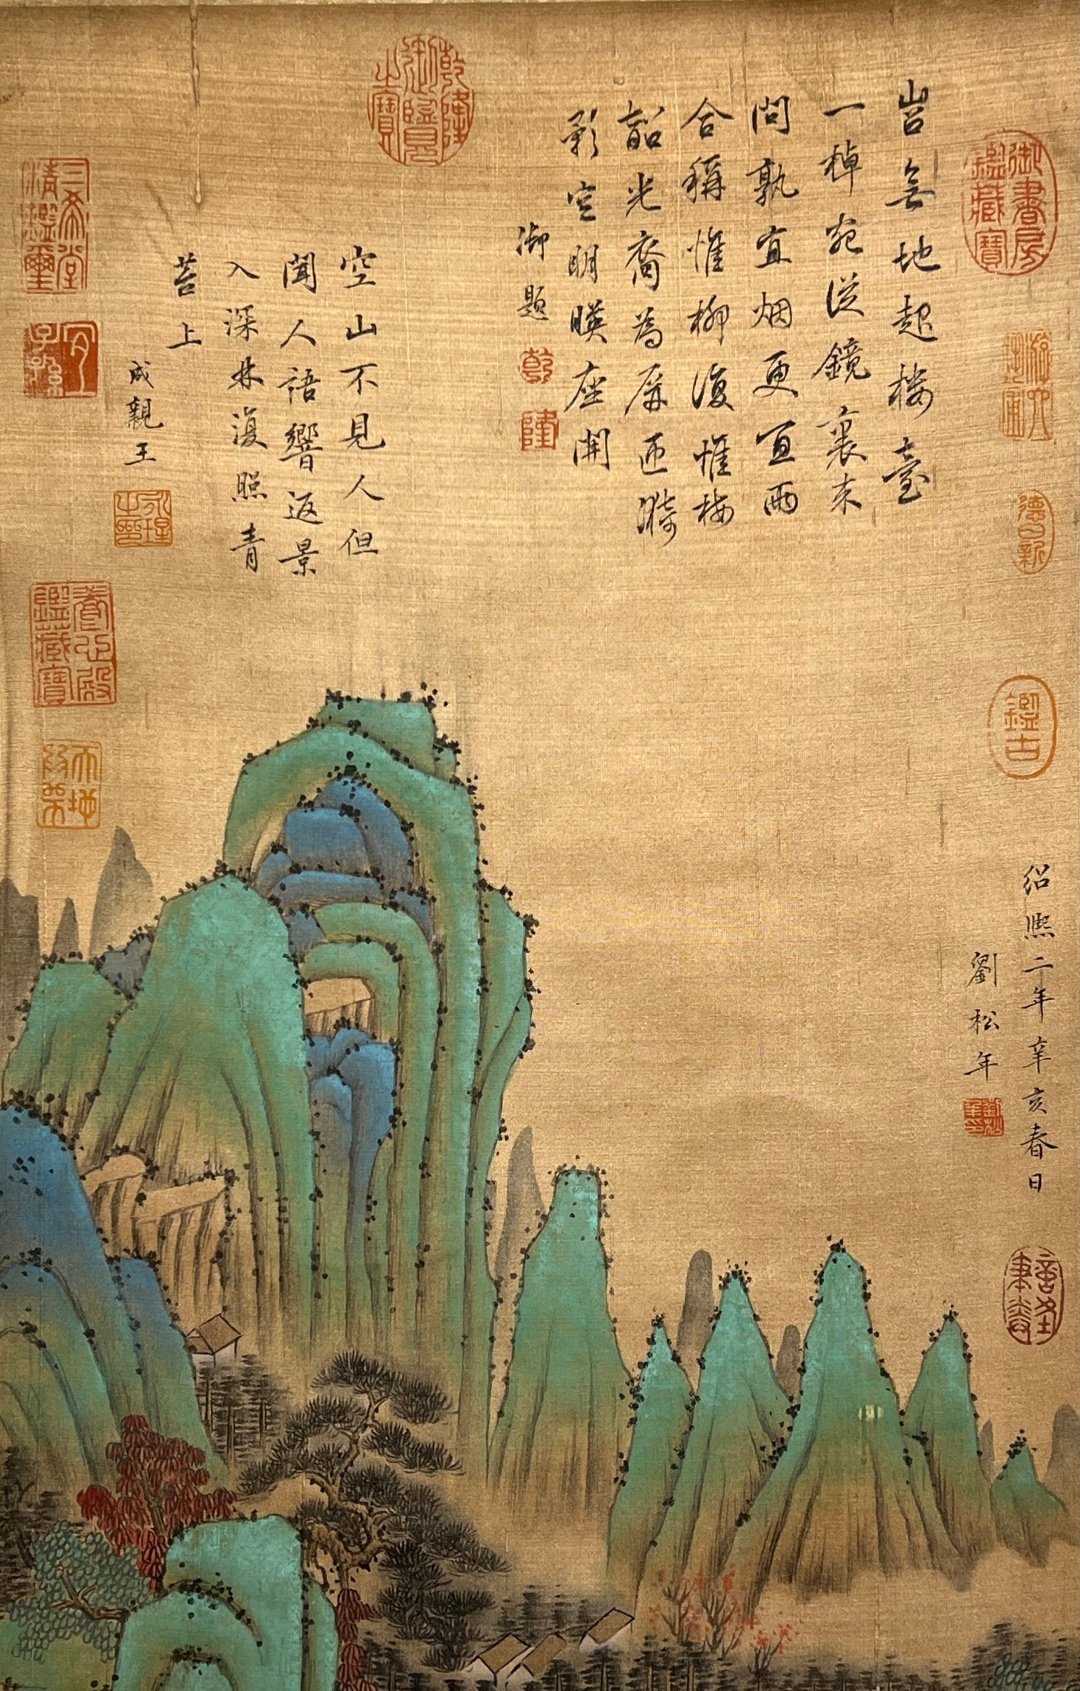 御書房鑑藏寶
德日新
鑑古
無地起楼臺
一棹宛從鏡裏来
問孰宜烟更宜雨
合稱惟柳復惟梅
韶光裔為屏匝漪
影空明暎座開
御題
乾隆
乾隆御覽之寶
空山不見人但
聞人語響返景
入深林復照青
苔上
成親王
永瑆之印
三希堂精鑑璽
宜子孫
養心殿鑑藏寶
紹熙二年辛亥春日
劉松年